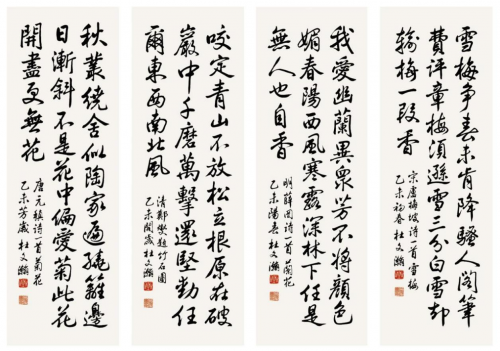 雪梅争春未肯降騷人阁筆
費评章梅湏遜雪三分白雪却
輸梅一段香
宋盧梅坡诗一首雪梅
乙未初春杜文瀚
我愛幽蘭異衆芳不將顔色
媚春陽西風寒露深林下任是
無人也自香
明薛网诗一首蘭花
乙未陽春杜文瀚
咬定青山不放松立根原在破
巖中千磨萬擊還堅勁任
爾東西南北風
清鄭燮題竹石圖
乙未歲杜文瀚
秋叢绕舍似陶家遍繞籬邊
日漸斜不是花中偏愛菊此花
開盡更無花
唐元稹诗一首菊花
乙未芳歲杜文瀚